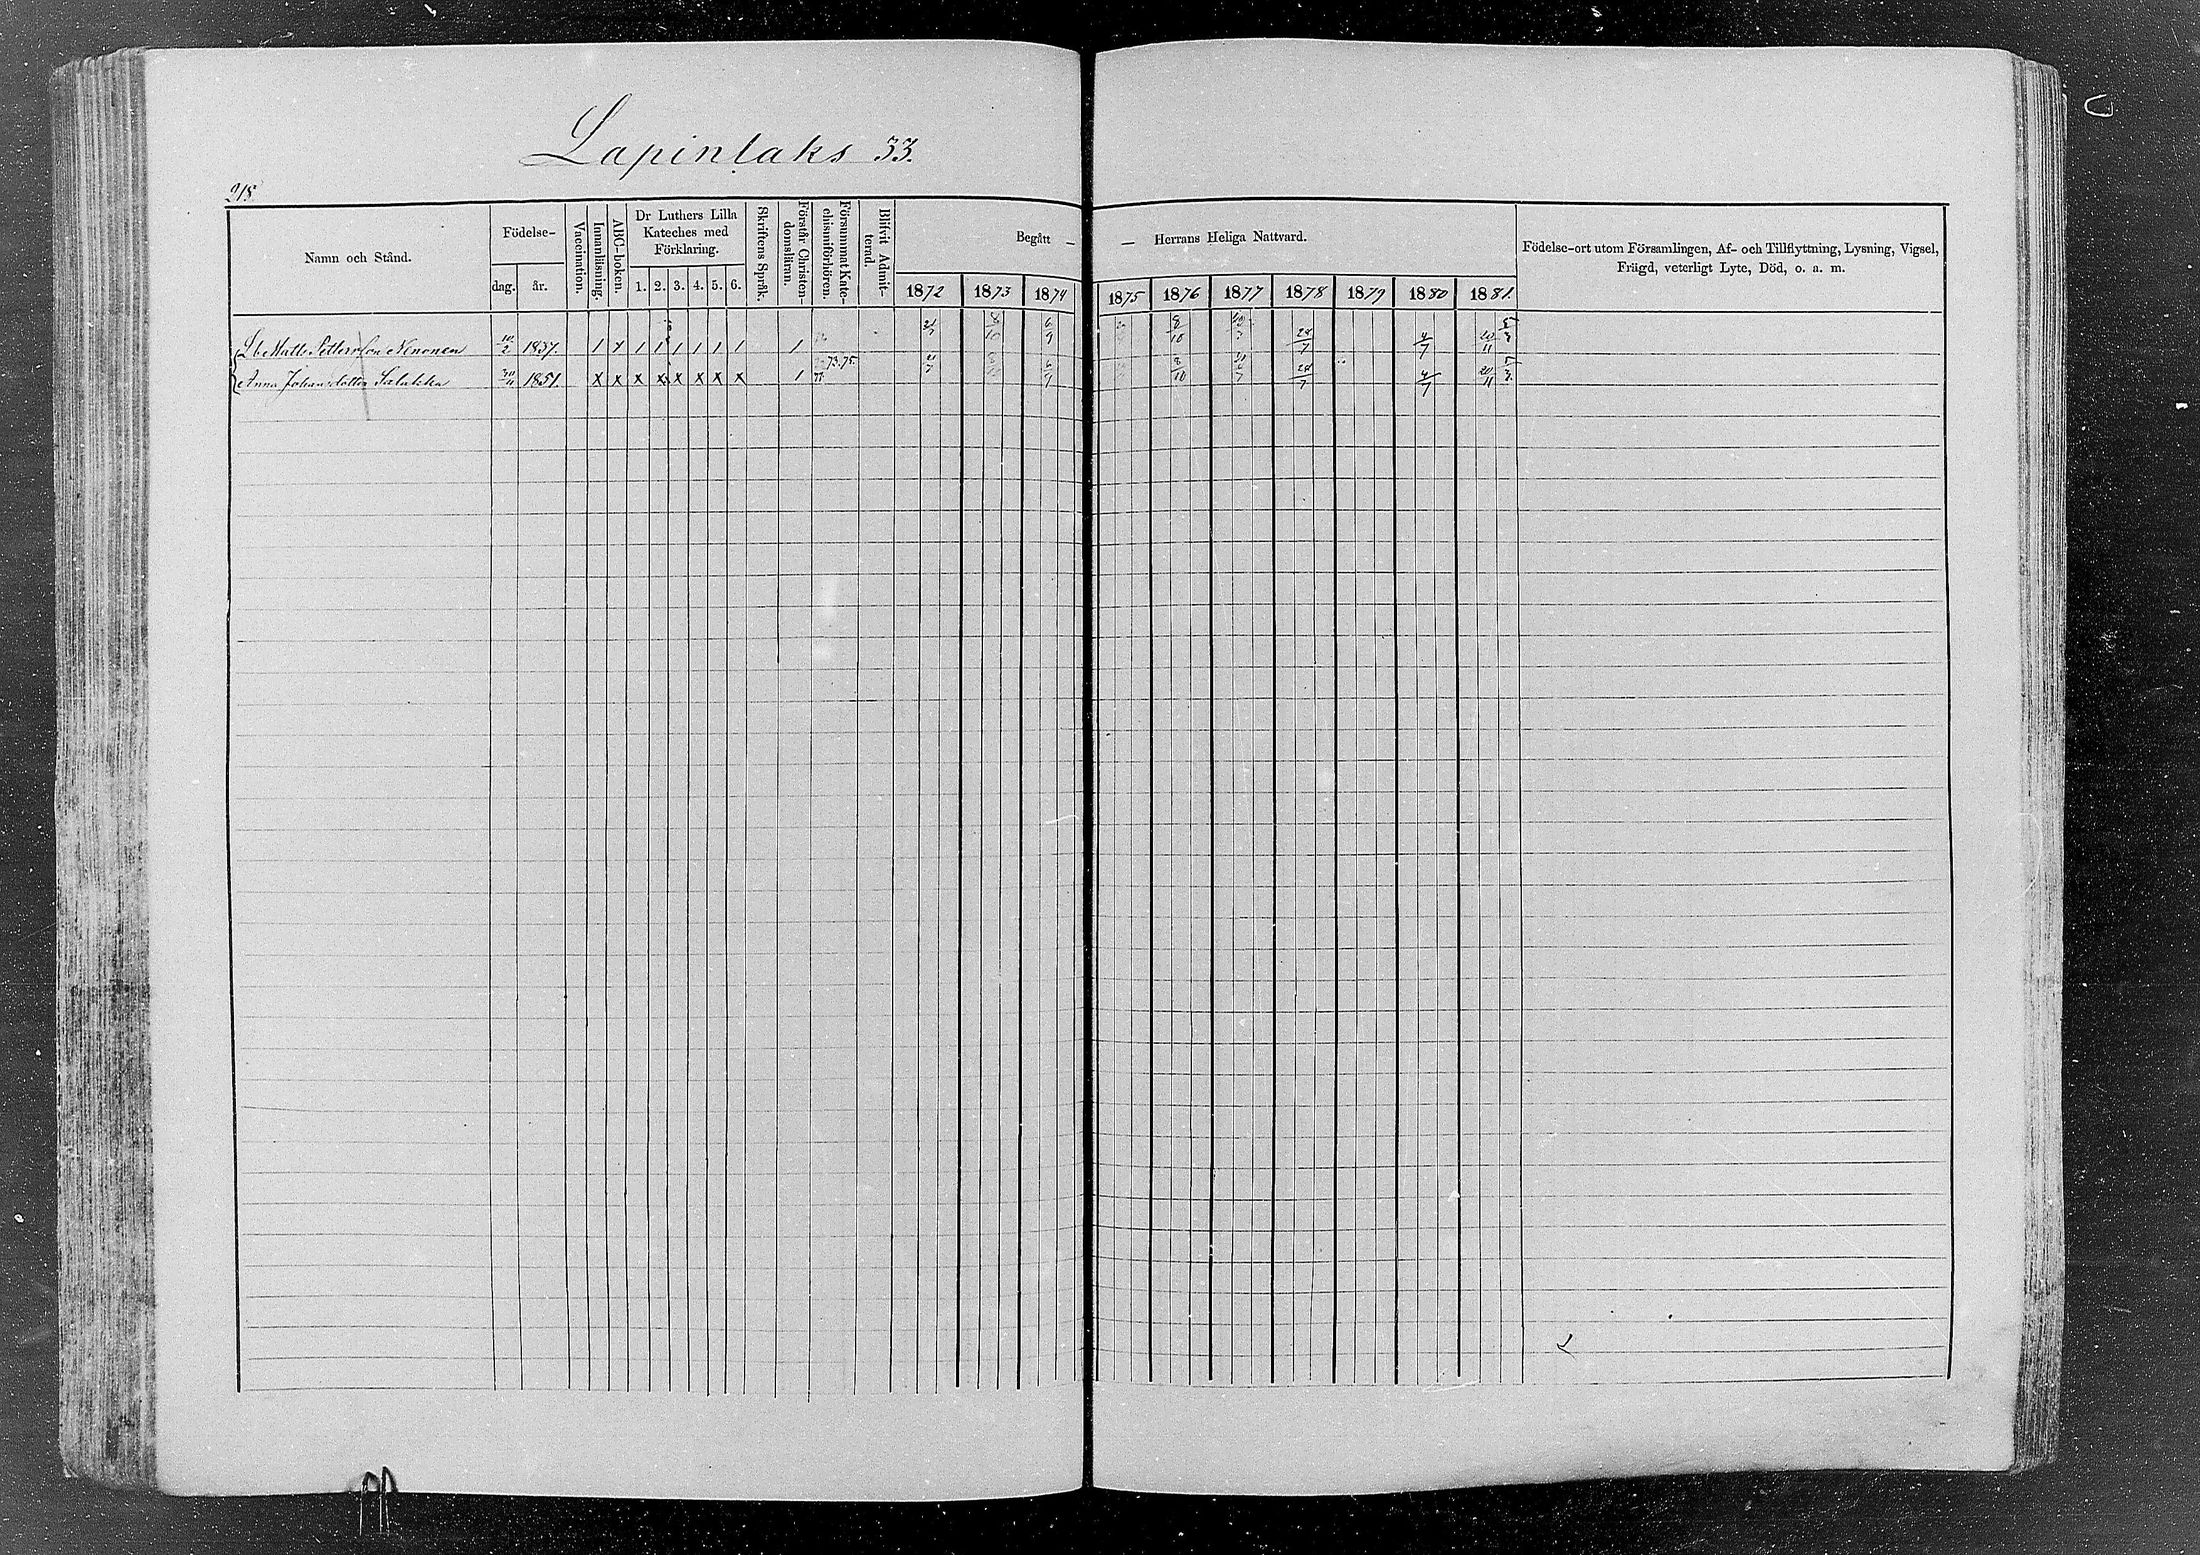 Lapinlaks 33.
218
Namn och Stånd.
Födelse-
dag.
år.
Vaccination.
Innanläsning.
ABC-boken.
Dr Luthers Lilla
Kateches med
Förklaring.
1. 2. 3. 4. 5. 6.
Skriftens Språk.
Förstår Christen-
domsläran.
Försummat Kate-
chismiförhören.
Blifvit Admit-
terad.
Begått —
— Herrans Heliga Nattvard.
1872 1873 1874 1875 1876 1877 1878 1879 1880 1881.
Födelse-ort utom Församlingen, Af- och Tillflyttning, Lysning, Vigsel,
Frägd, veterligt Lyte, Död, o. a. m.
Matts Pettersson Nenonen 10/2 1837. 21/7 8/10 6/9 8/10 28/7 4/7 20/11
Anna Johansdotter 1851. x x x x x x x x 1 73.75. 21/7 6/9 8/10 28/7 4/7 20/11